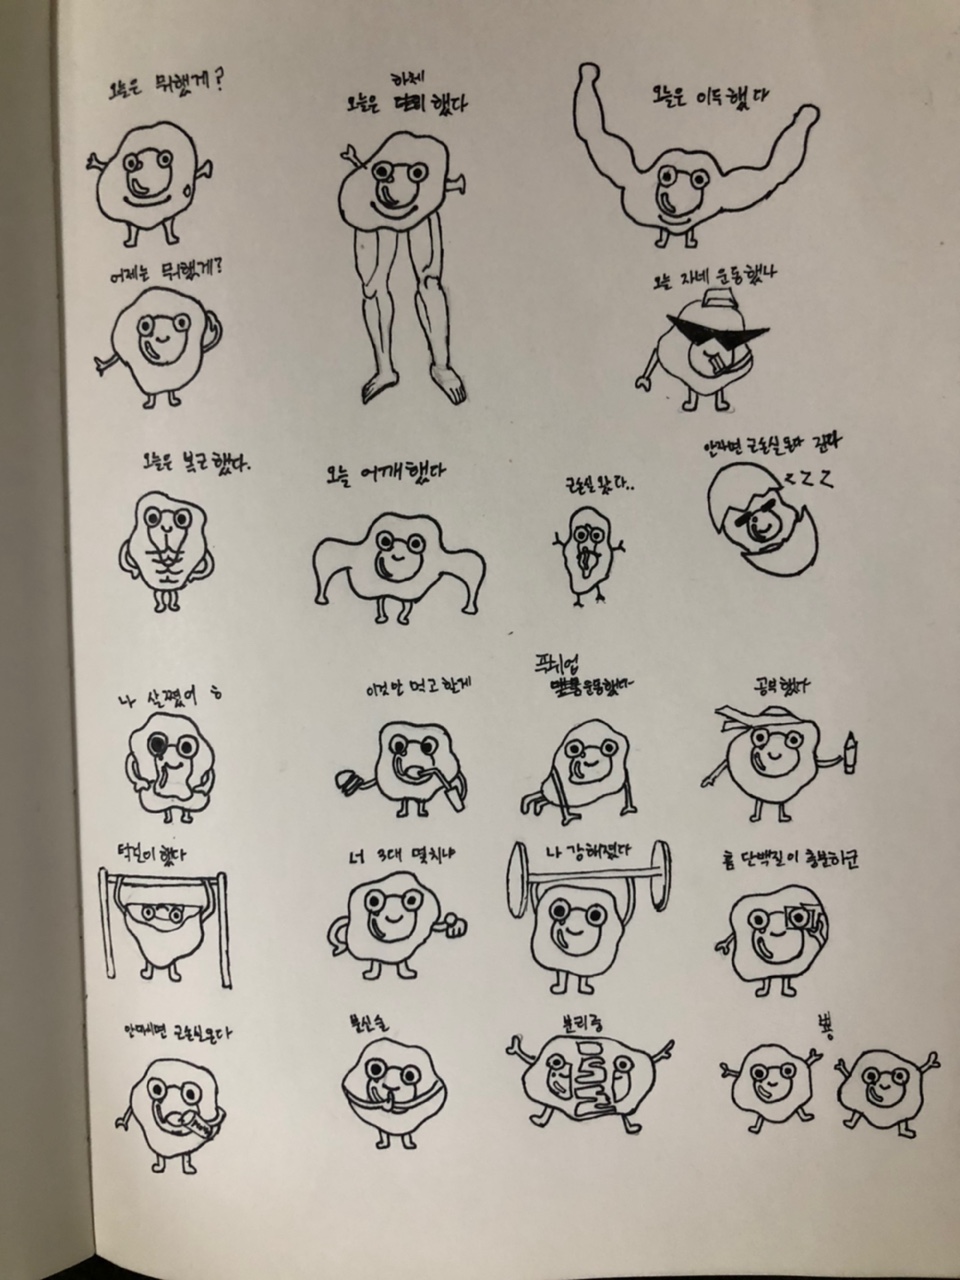 오늘은 뭐했게?
하체
오늘은 했다
오늘은 이두했다
어제는 뭐했게?
오늘 자네 운동했나
오늘은 복근했다.
오늘 어깨했다
근손실 왔다..
안자면 근손실온다 잔다
zzz
나 살쪘어 ㅎ
이것만 먹고 할게
푸쉬업
운동했다
공부했다
턱걸이 했다
너 3대 몇치냐
나 강해졌다
흠 단백질이 충분하군
안마시면 근손실온다
분신술
분리중
뿅